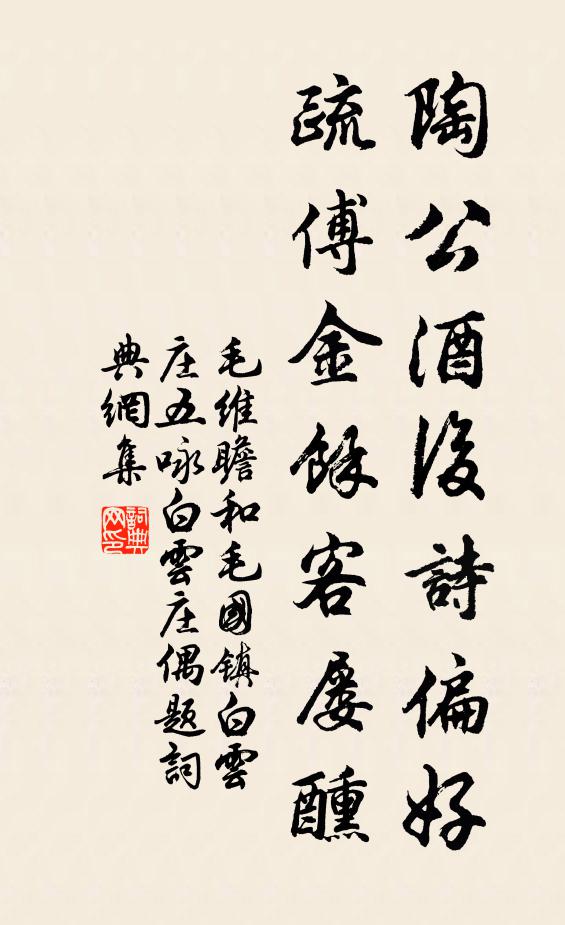 陶公酒後詩偏好
疏傅金餘客屢醺
毛維瞻和毛國鎮白雲
庄五咏白雲庄偶題詞
典網集
詞典
网印